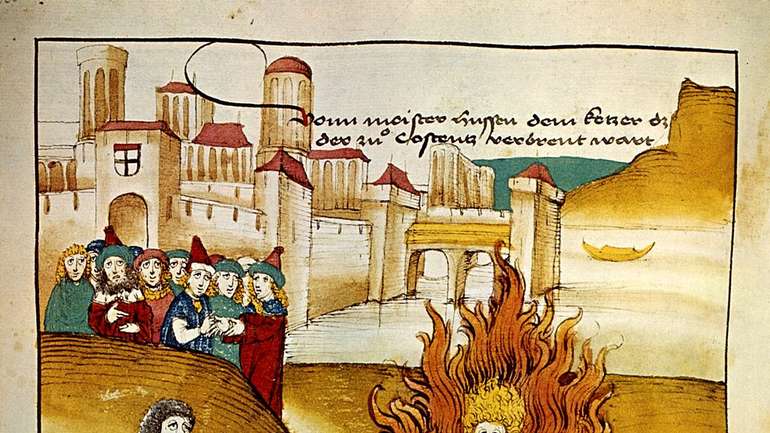 Vonn meister hussen dem ketzer dz
der zuͦ Costentz verbrent wart